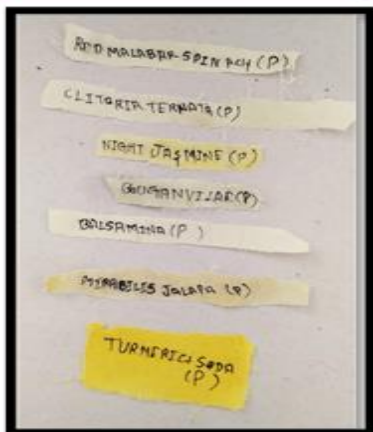 RED MALABAR SPINACH (P)
CLITORIA TERNATA (P)
NIGHT JASMINE (P)
BOUGANVILAE (P)
BALSAMINA (P)
MIRABILIS JALAPA (P)
TURMERIC+SODA
(P)